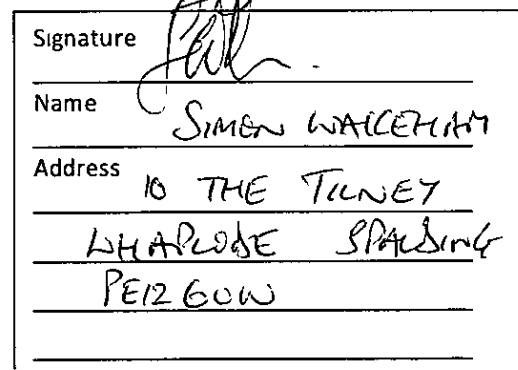 Signature
Name SIMON WAKEHAM
Address 10 THE TILNEY
WHAPLODE SPALDING
PE12 6UW